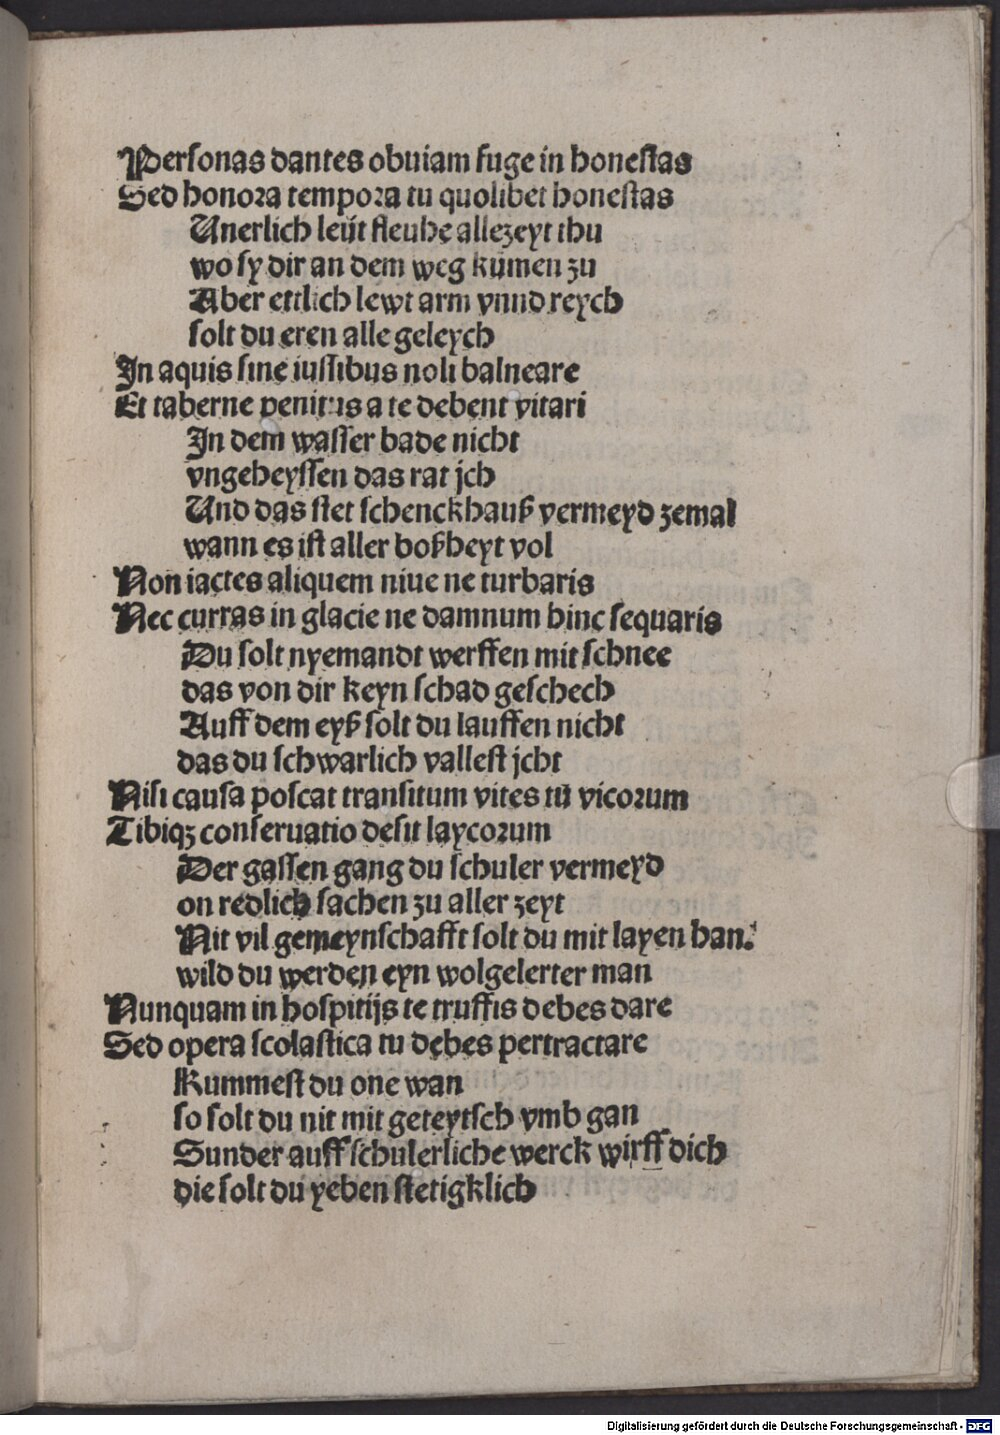 Perſonas dantes obuiam fuge in honeſtas
Sed honora tempora tu quolibet honeſtas
Unerlich leüt fleuhe allezeyt thu
wo ſy dir an dem weg kumen zu
Aber ettlich lewt arm vnnd reych
ſolt du eren alle geleych
In aquis ſine iuſſibus noli balneare
Et taberne penitus a te debent vitari
In dem waſſer bade nicht
vngeheyſſen das rat jch
Und das ſtet ſchenckhauß vermeyd zemal
wann es iſt aller boßheyt vol
Non iactes aliquem niue ne turbaris
Nec curras in glacie ne damnum hinc ſequaris
Du ſolt nyemandt werffen mit ſchnee
das von dir keyn ſchad geſchech
Auff dem eyß ſolt du lauffen nicht
das du ſchwarlich valleſt jcht
Niſi cauſa poſcat tranſitum vites tū vicorum
Tibiqꝫ conſeruatio deſit laycorum
Der gaſſen gang du ſchuler vermeyd
on redlich ſachen zu aller zeyt
Nit vil gemeynſchafft ſolt du mit layen han.
wild du werden eyn wolgelerter man
Nunquam in hoſpitijs te truffis debes dare
Sed opera ſcolaſtica tu debes pertractare
Kummeſt du one wan
ſo ſolt du nit mit geteytſch vmb gan
Sunder auff ſchulerliche werck wirff dich
die ſolt du yeben ſtetigklich
Digitalisierung gefördert durch die Deutsche Forschungsgemeinschaft - DFG